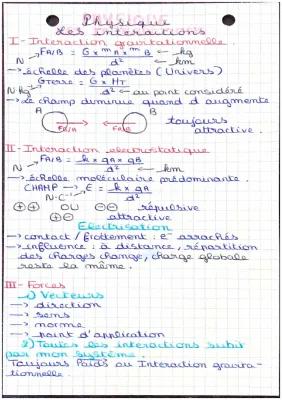 Physique
Les Interactions
I - Interaction gravitationnelle.
FA/B = G x mA x mB ← kg
N d² ← km
→ échelle des planètes (Univers)
GTerre = G x MT
N·kg⁻¹ d² ← au point considéré
→ Le champ diminue quand d augmente
A B toujours
FB/A FA/B attractive.
II - Interaction electrostatique
FA/B = k x qA x qB
N d² ← km
→ échelle moléculaire prédominante.
CHAMP → E = k x qA
N·C⁻¹ d²
+ + OU - - répulsive
+ - attractive
Electrisation
→ contact / frottement : e⁻ arrachés
→ influence : à distance, répartition
des charges change, charge globale
reste la même.
III - Forces
1) Vecteurs
→ direction
→ sens
→ norme
→ point d'application
2) Toutes les interactions subit
par mon système.
Toujours Poids ou Interaction gravita-
tionnelle.